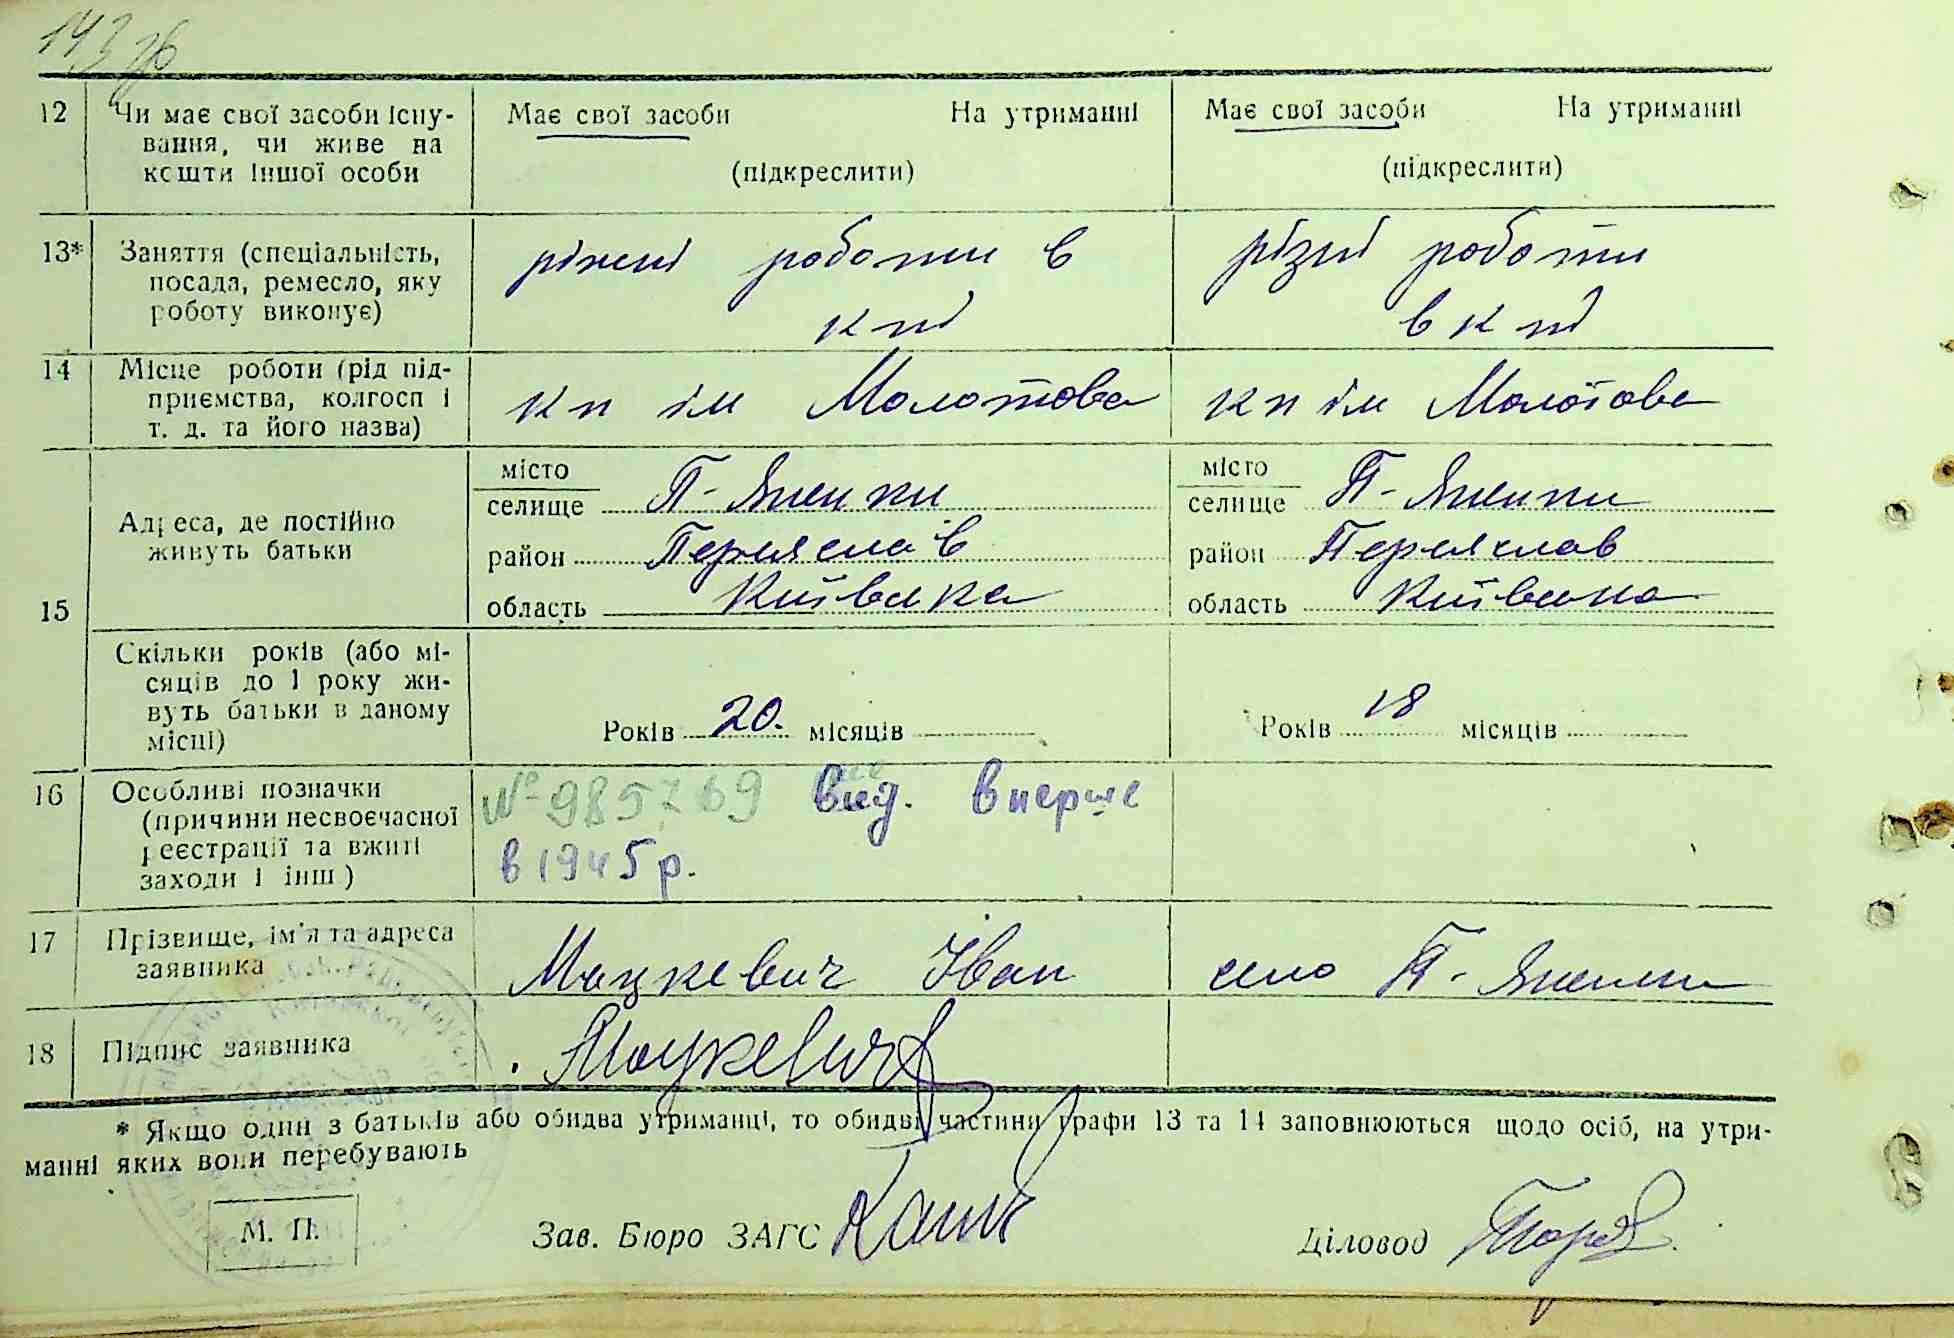 143 зв
12 Чи має свої засоби існу- Має свої засоби На утриманні Має свої засоби На утриманні
вання, чи живе на
кошти іншої особи (підкреслити) (підкреслити)
13* Заняття (спеціальність, ріжні роботи в різні роботи
посада, ремесло, яку
роботу виконує) к пі в к пі
14 Місце роботи (рід під-
приємства, колгосп і кп ім Молотова кп ім Молотова
т. д. та його назва)
місто місто
селище П-Яненки селище П-Яненки
Адреса, де постійно
живуть батьки район Переяслав район Переяслав
15 область Київська область Київська
Скільки років (або мі-
сяців до 1 року жи-
вуть батьки в даному
місці) Років 20. місяців Років 18 місяців
16 Особливі позначки № 985769 вид. вперше
(причини несвоєчасної
реєстрації та вжиті в 1945 р.
заходи і інш)
17 Прізвище, ім'я та адреса
заявника Мацкевич Іван село П-Яненки
18 Підпис заявника Мацкевич
* Якщо один з батьків або обидва утриманці, то обидві частини графи 13 та 14 заповнюються щодо осіб, на утри-
манні яких вони перебувають
М. П. Зав. Бюро ЗАГС Діловод